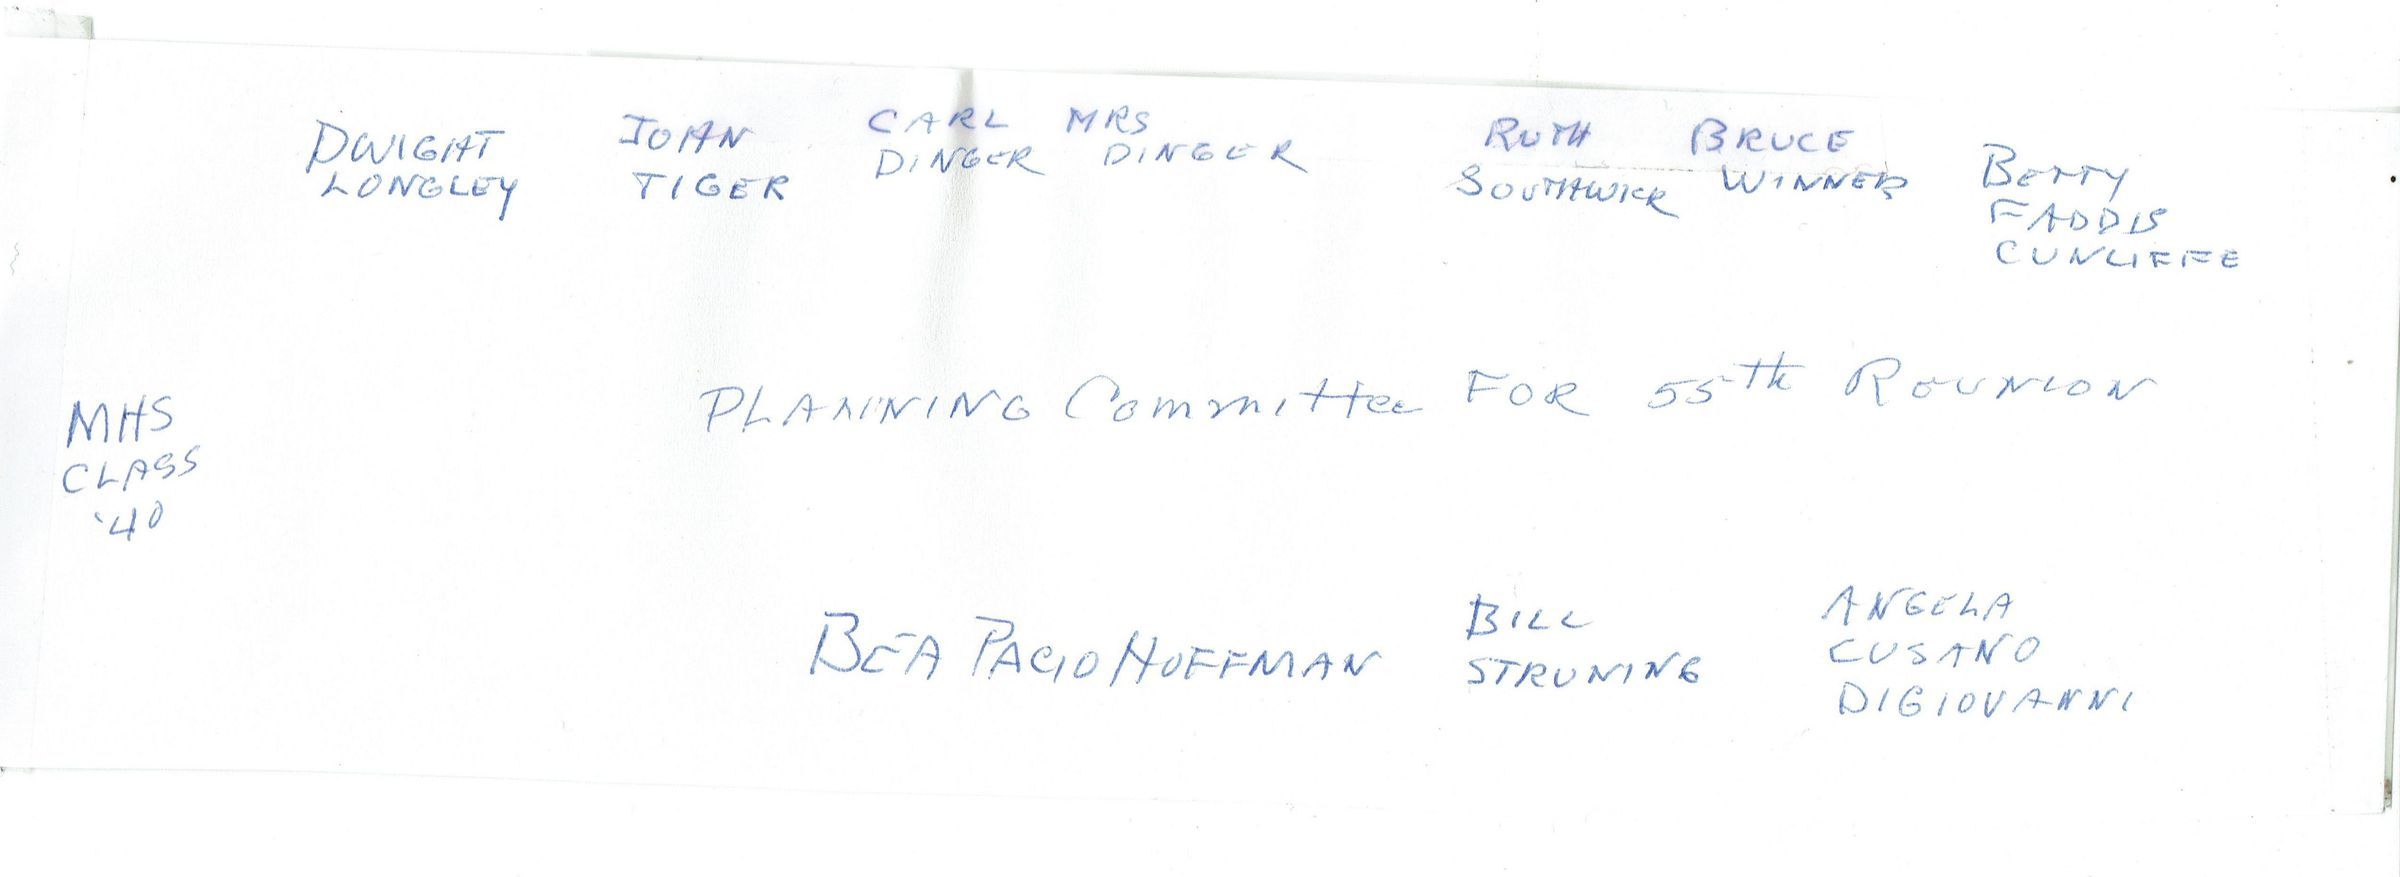 DWIGHT
LONGLEY
JOHN
TIGER
CARL
DINGER
MRS
DINGER
RUTH
SOUTHWICK
BRUCE
WINNER
BETTY
FADDIS
CUNLIFFE
MHS
CLASS
'40
PLANNING Committee FOR 55th REUNION
BEA PACIO HOFFMAN
BILL
STRUNING
ANGELA
CUSANO
DIGIOVANNI